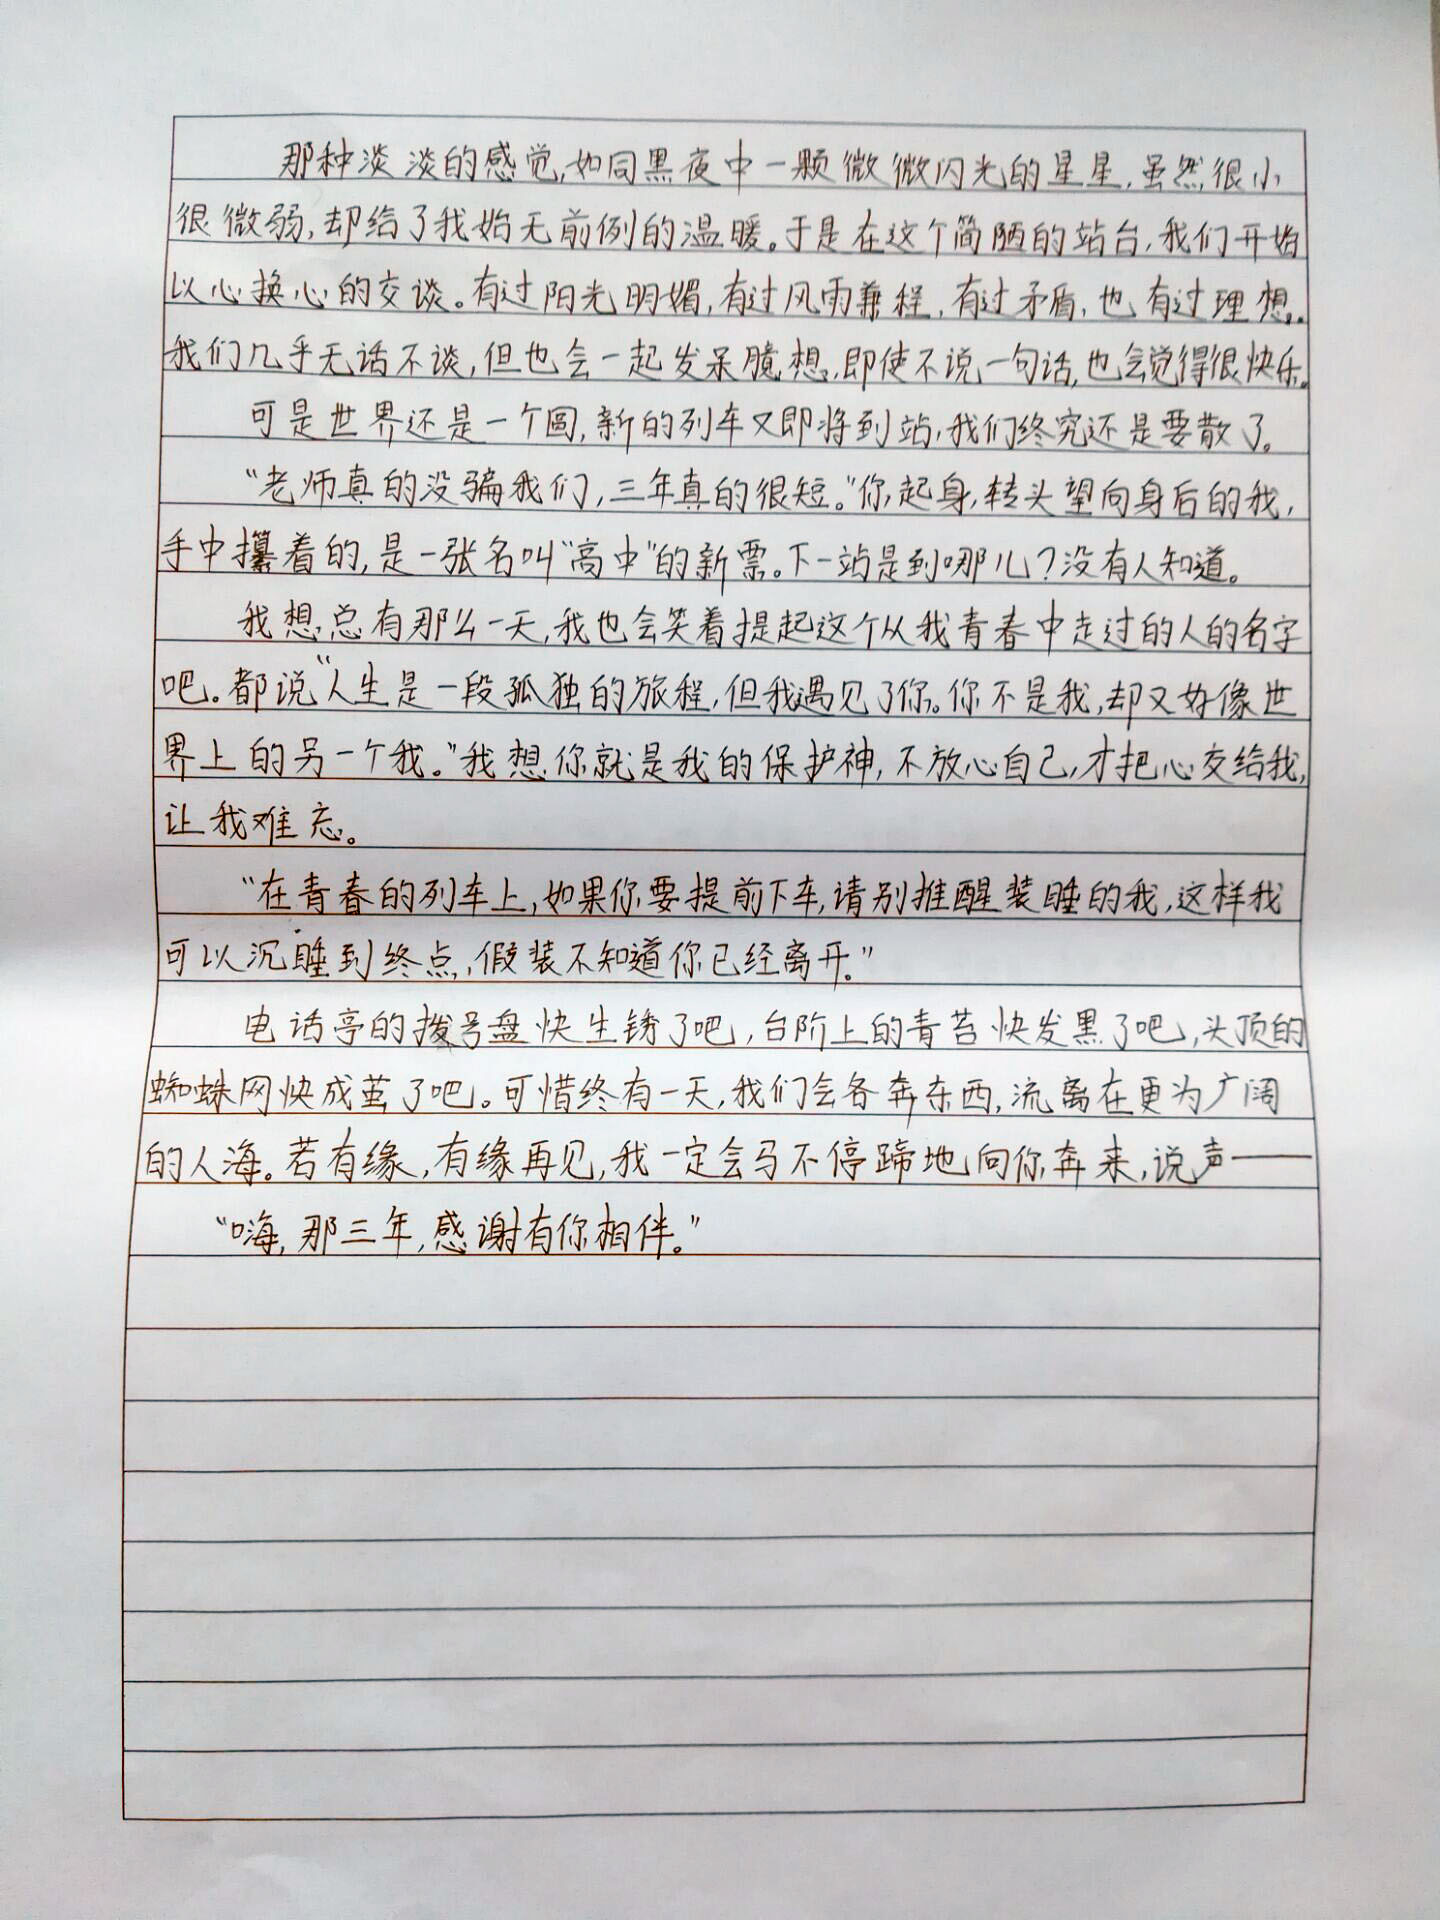 那种淡淡的感觉,如同黑夜中一颗微微闪光的星星,虽然很小
很微弱,却给了我始无前例的温暖。于是在这个简陋的站台,我们开始
以心换心的交谈。有过阳光明媚,有过风雨兼程,有过矛盾,也有过理想。
我们几乎无话不谈,但也会一起发呆臆想,即使不说一句话,也会觉得很快乐。
可是世界还是一个圆,新的列车又即将到站,我们终究还是要散了。
“老师真的没骗我们,三年真的很短。”你起身,转头望向身后的我,
手中攥着的,是一张名叫“高中”的新票。下一站是到哪儿?没有人知道。
我想总有那么一天,我也会笑着提起这个从我青春中走过的人的名字
吧。都说“人生是一段孤独的旅程,但我遇见了你。你不是我,却又好像世
界上的另一个我。”我想你就是我的保护神,不放心自己,才把心交给我,
让我难忘。
“在青春的列车上,如果你要提前下车,请别推醒装睡的我,这样我
可以沉睡到终点,假装不知道你已经离开。”
电话亭的拨号盘快生锈了吧,台阶上的青苔快发黑了吧,头顶的
蜘蛛网快成茧了吧。可惜终有一天,我们会各奔东西,流离在更为广阔
的人海。若有缘,有缘再见,我一定会马不停蹄地向你奔来,说声——
“嗨,那三年,感谢有你相伴。”